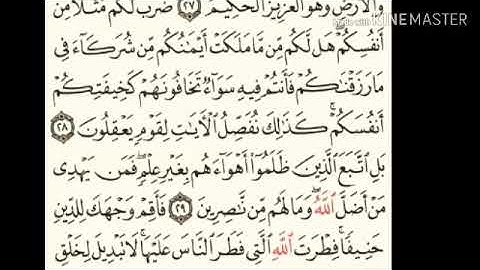 وَالْأَرْضِ وَهُوَ الْعَزِيزُ الْحَكِيمُ ٢٧ ضَرَبَ لَكُم مَّثَلًا مِّنْ
made with KINEMASTER
أَنفُسِكُمْ هَل لَّكُم مِّن مَّا مَلَكَتْ أَيْمَٰنُكُم مِّن شُرَكَآءَ فِى
مَا رَزَقْنَٰكُمْ فَأَنتُمْ فِيهِ سَوَآءٌ تَخَافُونَهُمْ كَخِيفَتِكُمْ
أَنفُسَكُمْ ۚ كَذَٰلِكَ نُفَصِّلُ الْأَيَٰتِ لِقَوْمٍ يَعْقِلُونَ ٢٨
بَلِ اتَّبَعَ الَّذِينَ ظَلَمُوٓا۟ أَهْوَآءَهُم بِغَيْرِ عِلْمٍ ۖ فَمَن يَهْدِى
مَنْ أَضَلَّ اللَّهُ ۖ وَمَا لَهُم مِّن نَّٰصِرِينَ ٢٩ فَأَقِمْ وَجْهَكَ لِلدِّينِ
حَنِيفًا ۚ فِطْرَتَ اللَّهِ الَّتِى فَطَرَ النَّاسَ عَلَيْهَا ۚ لَا تَبْدِيلَ لِخَلْقِ